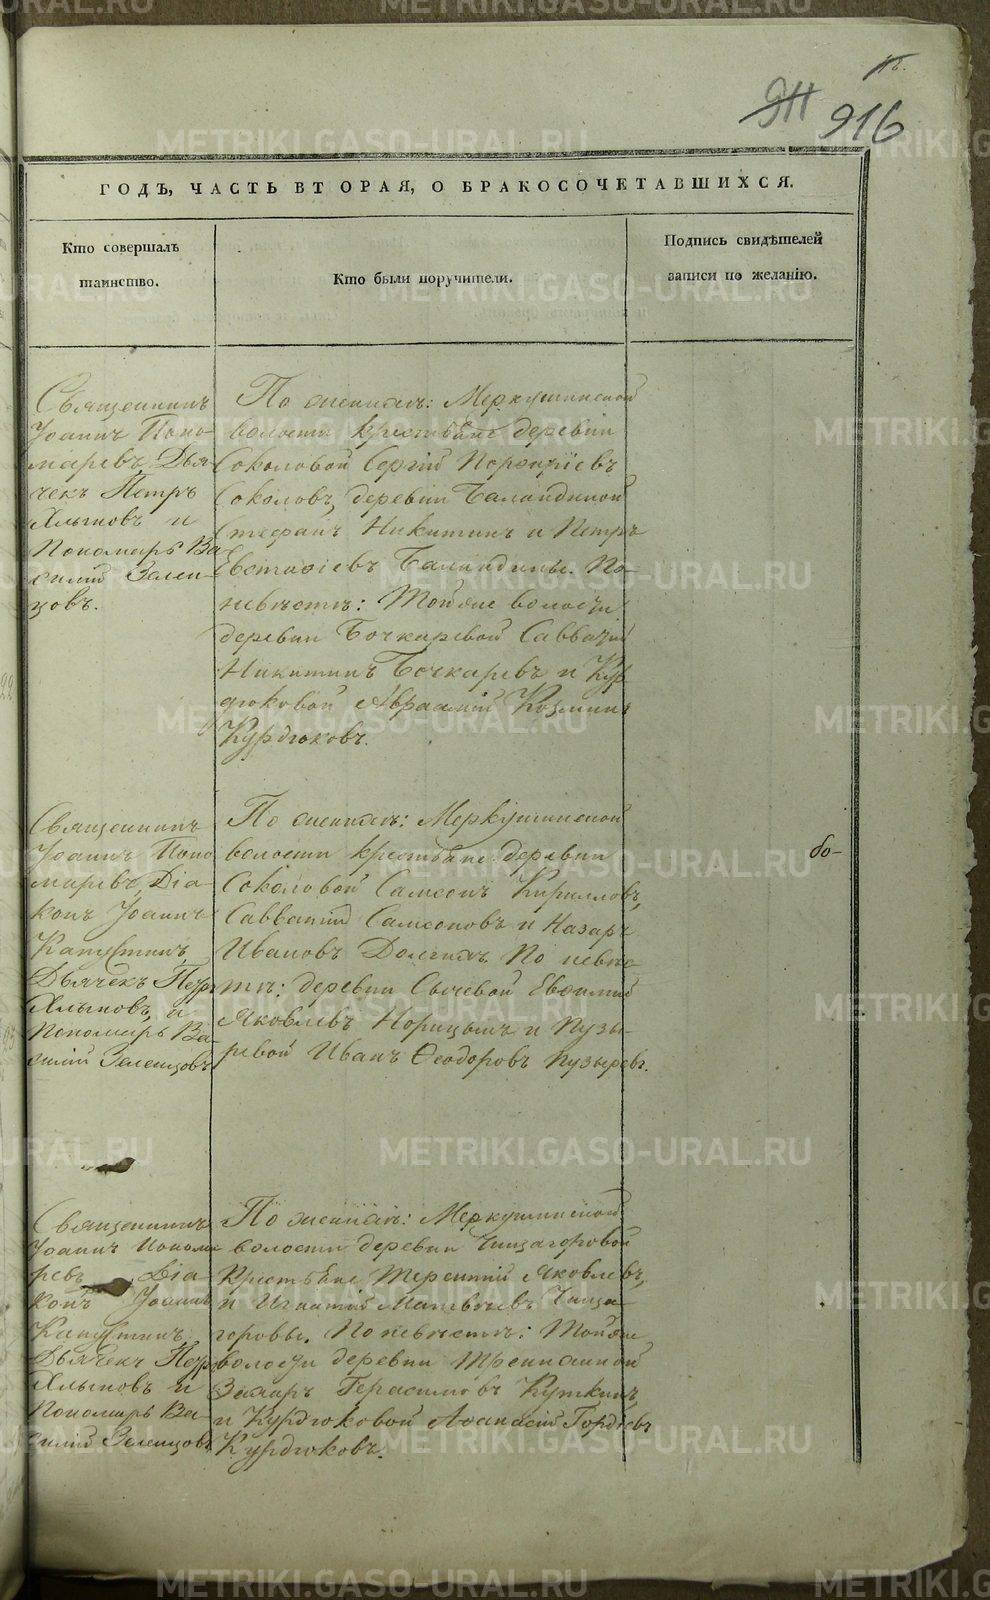 916
ГОДЪ, ЧАСТЬ ВТОРАЯ, О БРАКОСОЧЕТАВШИХСЯ.
Кто совершалъ таинство.
Кто были поручители.
Подпись свидѣтелей записи по желанію.
Священникъ
Іоаннъ Поно-
маревъ, Дья-
чекъ Петръ
Хлыновъ и
Пономарь Ва-
силій Зелен-
цовъ.
По женихѣ: Меркушинской
волости крестьяне деревни
Соколовой Сергій Порфиріевъ
Соколовъ, деревни Баландиной
Стефанъ Никитинъ и Петръ
Евстафіевъ Баландины. По
невѣстѣ: Тойже волости
деревни Бочкаревой Савватій
Никитинъ Бочкаревъ и Кур-
дюковой Авраамій Козминъ
Курдюковъ.
Священникъ
Іоаннъ Поно-
маревъ, Діа-
конъ Іоаннъ
Капустинъ,
Дьячекъ Петръ
Хлыновъ, и
Пономарь Ва-
силій Зеленцовъ
По женихѣ: Меркушинской
волости крестьяне деревни
Соколовой Самсонъ Кирилловъ,
Савватій Самсоновъ и Назаръ
Ивановъ По невѣс-
тѣ: деревни Сычевой Евфимій
Яковлевъ Норицынъ и Пузы-
ревой Иванъ Ѳеодоровъ Пузыревъ.
бо-
Священникъ
Іоаннъ Понома-
ревъ Діа-
конъ Іоаннъ
Капустинъ,
Дьячекъ Петръ
Хлыновъ и
Пономарь Ва-
силій Зеленцовъ
По женихѣ: Меркушинской
волости деревни
Крестьяне Терентій Яковлевъ,
и Игнатій Матвѣевъ
По невѣстѣ: Тойже
волости деревни
Захаръ Герасимовъ Куткинъ,
и Курдюковой Аѳанасій Гордѣевъ
Курдюковъ.
METRIKI.GASO-URAL.RU